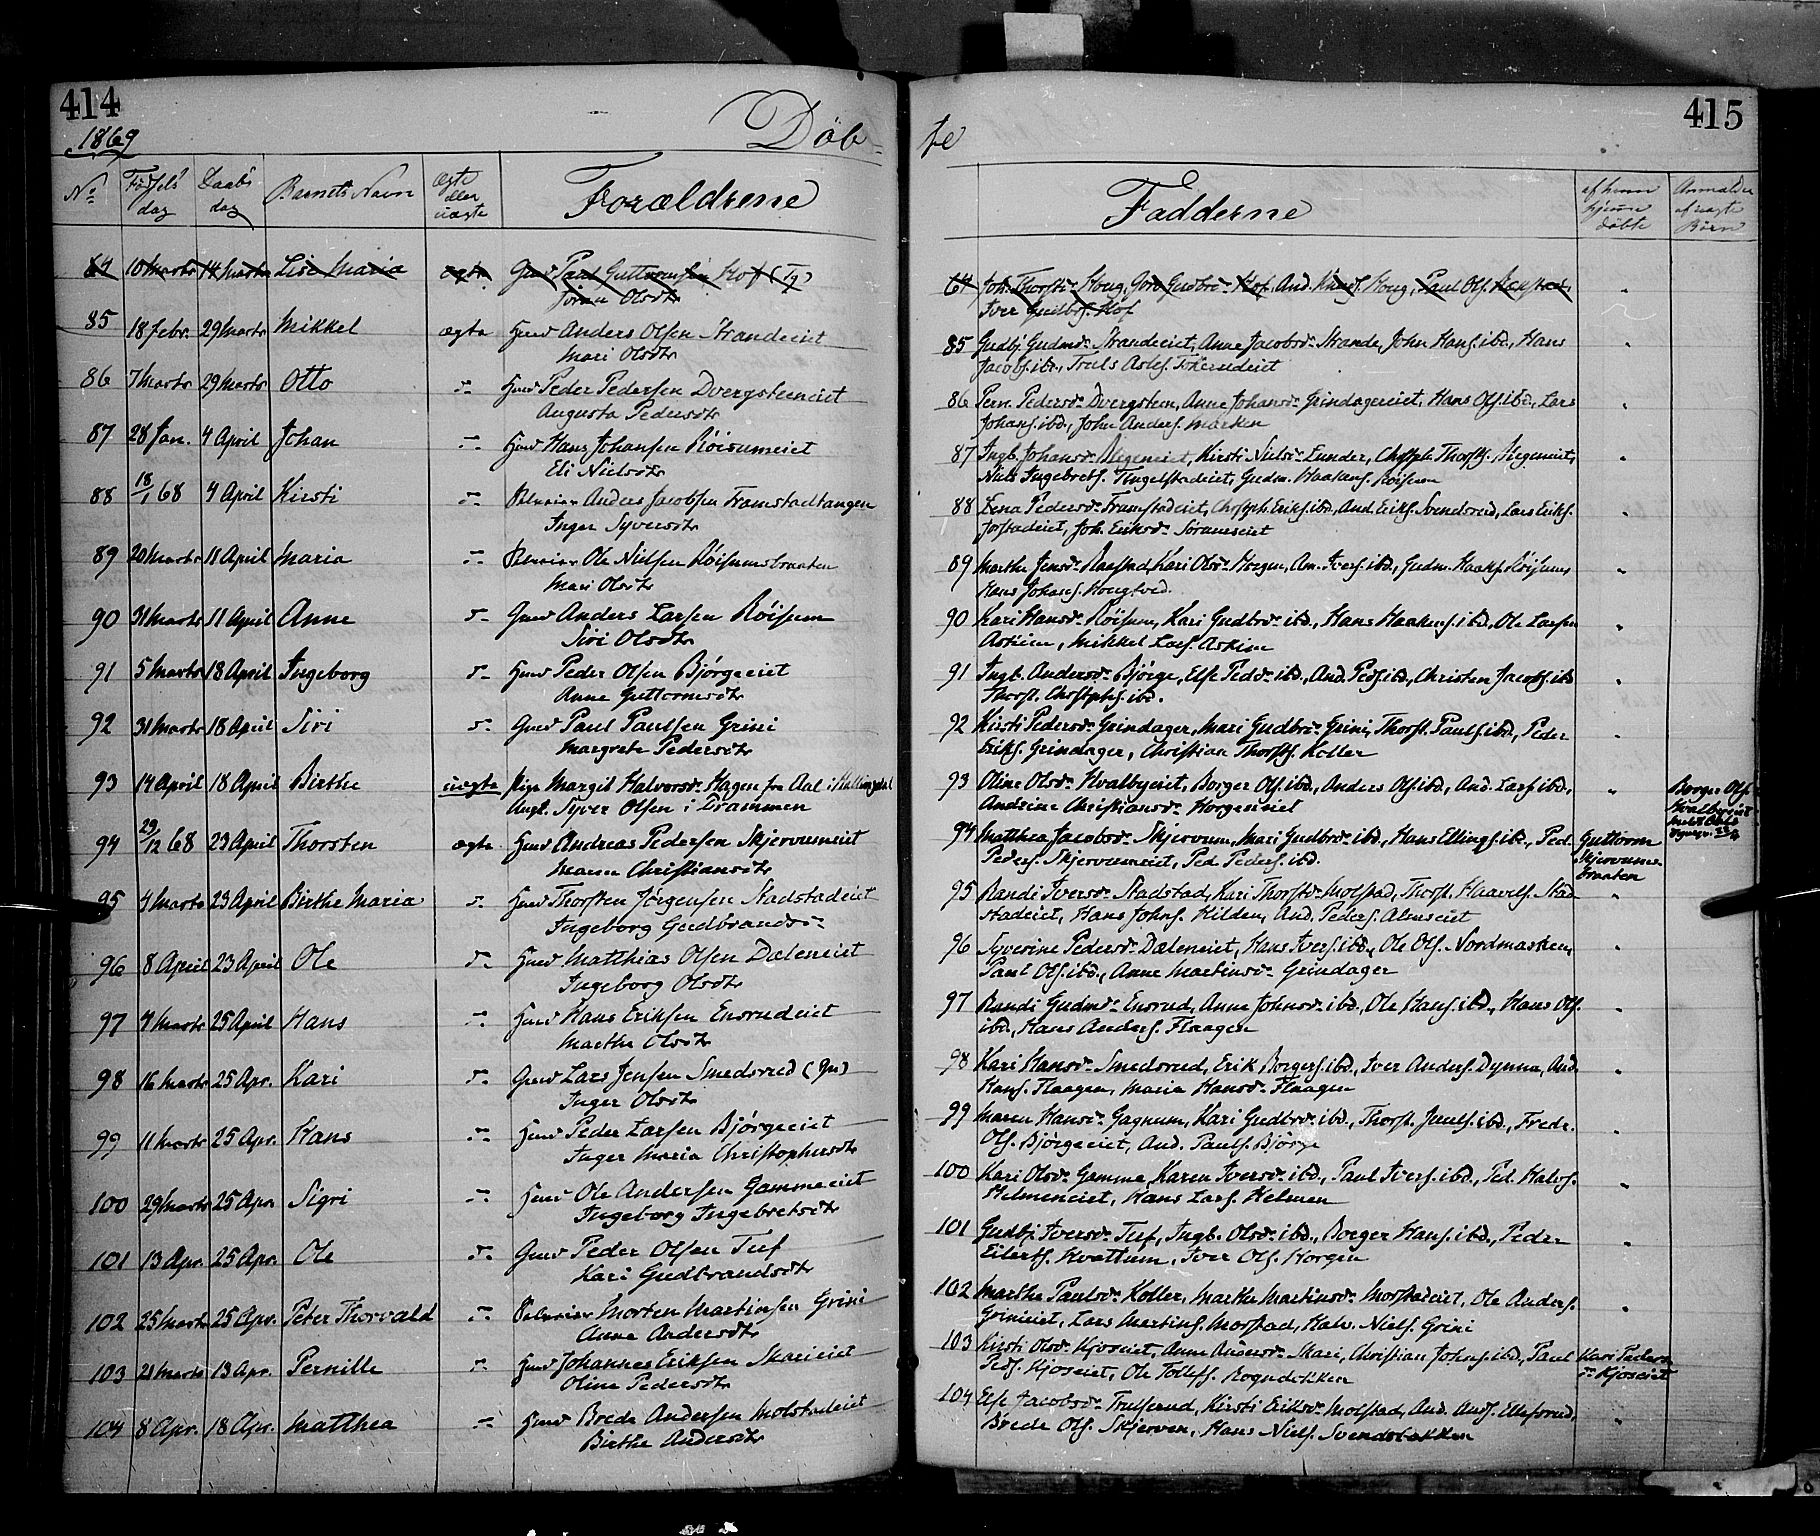 414
1869
Døb-
No
Fødsels dag
Daabs dag
Barnets Navn
Ægte eller uægte
Forældrene
84 10 Marts 14 Marts Lise Maria ægte Gmd Paul Guttormsen Hof (Tg)
Jöran Olsdtr
85 18 Febr. 29 Marts Mikkel ægte Hmd Anders Olsen Strandeiet
Mari Olsdtr
86 7 Marts 29 Marts Otto Hmd Peder Pedersen Dvergsteneiet
Augusta Pedersdtr
87 28 Jan. 4 April Johan Hmd Hans Johansen Röisumeiet
Eli Nielsdtr
88 18/1 68 4 April Kirsti Anders Jacobsen Framstadtangen
Inger Syversdtr
89 20 Marts 11 April Maria Ole Nielsen Röisumsbraaten
Mari Olsdtr
90 31 Marts 11 April Anne Gmd Anders Larsen Röisum
Siri Olsdtr
91 5 Marts 18 April Ingeborg Hmd Peder Olsen Bjørgeeiet
Anne Guttormsdtr
92 31 Marts 18 April Siri Gmd Paul Paulsen Grini
Margrete Pedersdtr
93 14 April 18 April Birthe uægte Pige Margit Halvorsdr Hagen fra Aal i Hallingdal
Ungk. Syver Olsen i Drammen
94 29/12 68 23 April Thorsten ægte Hmd Andreas Pedersen Skjervumeiet
Maren Christiansdtr
95 4 Marts 23 April Birthe Maria Hmd Thorsten Jörgensen Stadstadeiet
Ingeborg Gudbrandsd
96 8 April 23 April Ole Hmd Matthias Olsen Dæleneiet
Ingeborg Olsdtr
97 4 Marts 25 April Hans Hmd Hans Eriksen Ensrudeiet
Marthe Olsdtr
98 16 Marts 25 Apr. Kari Gmd Lars Jensen Smedsrud (Jn)
Inger Olsdtr
99 11 Marts 25 Apr. Hans Hmd Peder Larsen Bjørgeeiet
Inger Maria Christophersdtr
100 29 Marts 25 Apr. Sigri Hmd Ole Andersen Gammeeiet
Ingeborg Ingebretsdtr
101 13 Apr. 25 Apr. Ole Gmd Peder Olsen Tuf
Kari Gudbrandsdtr
102 25 Marts 25 Apr. Peter Thorvald Morten Martinsen Grini
Anne Andersdtr
103 21 Marts 13 Apr. Pernille Hmd Johannes Eriksen Skarieiet
Oline Pedersdtr
104 8 Apr. 18 Apr. Matthea Hmd Brede Andersen Molstadeiet
Birthe Andersdtr
415
te
Fadderne
af hjemme døbte
Anmelder af uægte Börn
84 Joh. Thorst. Haug, Gudbr. Hof, And. Knuds. Haug, Paul Ols.
Iver Gudbrs. Hof
85 Gudbj Gudmd. Strandeiet, Anne Jacobsd. Strande, John Hans. ibd., Hans
Jacobs. ibd., Truls Asles.
86 Pern. Pedersd. Dvergsten, Anne Johansd. Grindagereiet, Hans Ols. ibd., Lars
Johans. ibd., John Anders. Marken
87 Ingb. Johansd. Kirsti Nielsd. Lunder, Chstph. Thorsts.
Niels Ingebrets. Tingelstadeiet, Gudm. Haakens. Röisum
88 Lena Pedersd. Framstadeiet, Chstph. Eriks. ibd., And. Eriks. Svendsrud, Lars Eriks.
Joh. Eriksd.
89 Marthe Jensd. Raastad, Kari Olsd. Horgen, An. Ivers. ibd., Gudm. Haaks. Röisum,
Hans Johans. Hougtved.
90 Kari Hansd. Röisum, Kari Gudbrd. ibd., Hans Haakens. ibd., Ole Larsen
Askim, Mikkel Lars. Askim
91 Ingb. Andersd. Bjørge, Else Pedsd. ibd., And. Peds. ibd., Christen Jacobs. ibd
Thorst. Chrstphs. ibd.
92 Kirsti Pedersd. Grindager, Mari Gudbrd. Grini, Thorst. Pauls. ibd., Peder
Eriks. Grindager, Christian Thorsts. Koller
93 Oline Olsd. Hvalbyeiet, Borger Ols. ibd., Anders Ols. ibd., And. Lars. ibd.,
Andrine Christiansd. Horgeneiet
Borger Ols.
Hvalbyeiet
94 Matthea Jacobsd. Skjervum, Mari Gudbrd. ibd., Hans Ellings. ibd., Ped.
Peders. Skjervumeiet, Ped. Peders. ibd.
Guttorm
Skjervums-
braaten
95 Randi Iversd. Stadstad, Kari Thorstd. Molstad, Thorst. Haavels. Stad-
stadeiet, Hans Johns. Kilden, And. Peders. Almseiet
96 Syverine Pedersd. Dæleneiet, Hans Ivers. ibd., Ole Ols. Nordmarken,
Paul Ols. ibd., Anne Martinsd. Grindager
97 Randi Gudmd. Ensrud, Anne Johnsd. ibd., Ole Hans. ibd., Hans Ols.
ibd., Hans Anders. Flaagen
98 Kari Hansd. Smedsrud, Erik Borgers. ibd., Iver Anders. Dynna, And.
Hans. Flaagen, Maria Hansd. Flaagen
99 Maren Hansd. Gagnum, Kari Gudbrd. ibd., Thorst. Pauls. ibd., Fredr.
Ols. Bjørgeeiet, And. Pauls. Bjørge
100 Kari Olsd. Gamme, Karen Iversd. ibd., Paul Ivers. ibd., Ped. Halvs.
Helmeneiet, Hans Lars. Helmen
101 Gudbj. Iversd. Tuf, Ingb. Olsd. ibd., Borger Hans. ibd., Peder
Eilerts. Hvattum, Iver Ols. Horgen
102 Marthe Paulsd. Koller, Marthe Martinsd. Morstadeiet, Ole Anders.
Grinieiet, Lars Martins. Morstad, Halv. Niels. Grini
103 Kirsti Olsd. Kjoseiet, Anne Andersd. Skari, Christian Johns. ibd., Paul
Peds. Kjoseiet, Ole Tollefs. Rognebakken
Kari Peders-
d. Kjoseiet
104 Else Jacobsd. Trulserud, Kirsti Eriksd. Molstad, And. Ands. Ellefsrud,
Brede Ols. Skjerven, Hans Niels. Svendsbakken